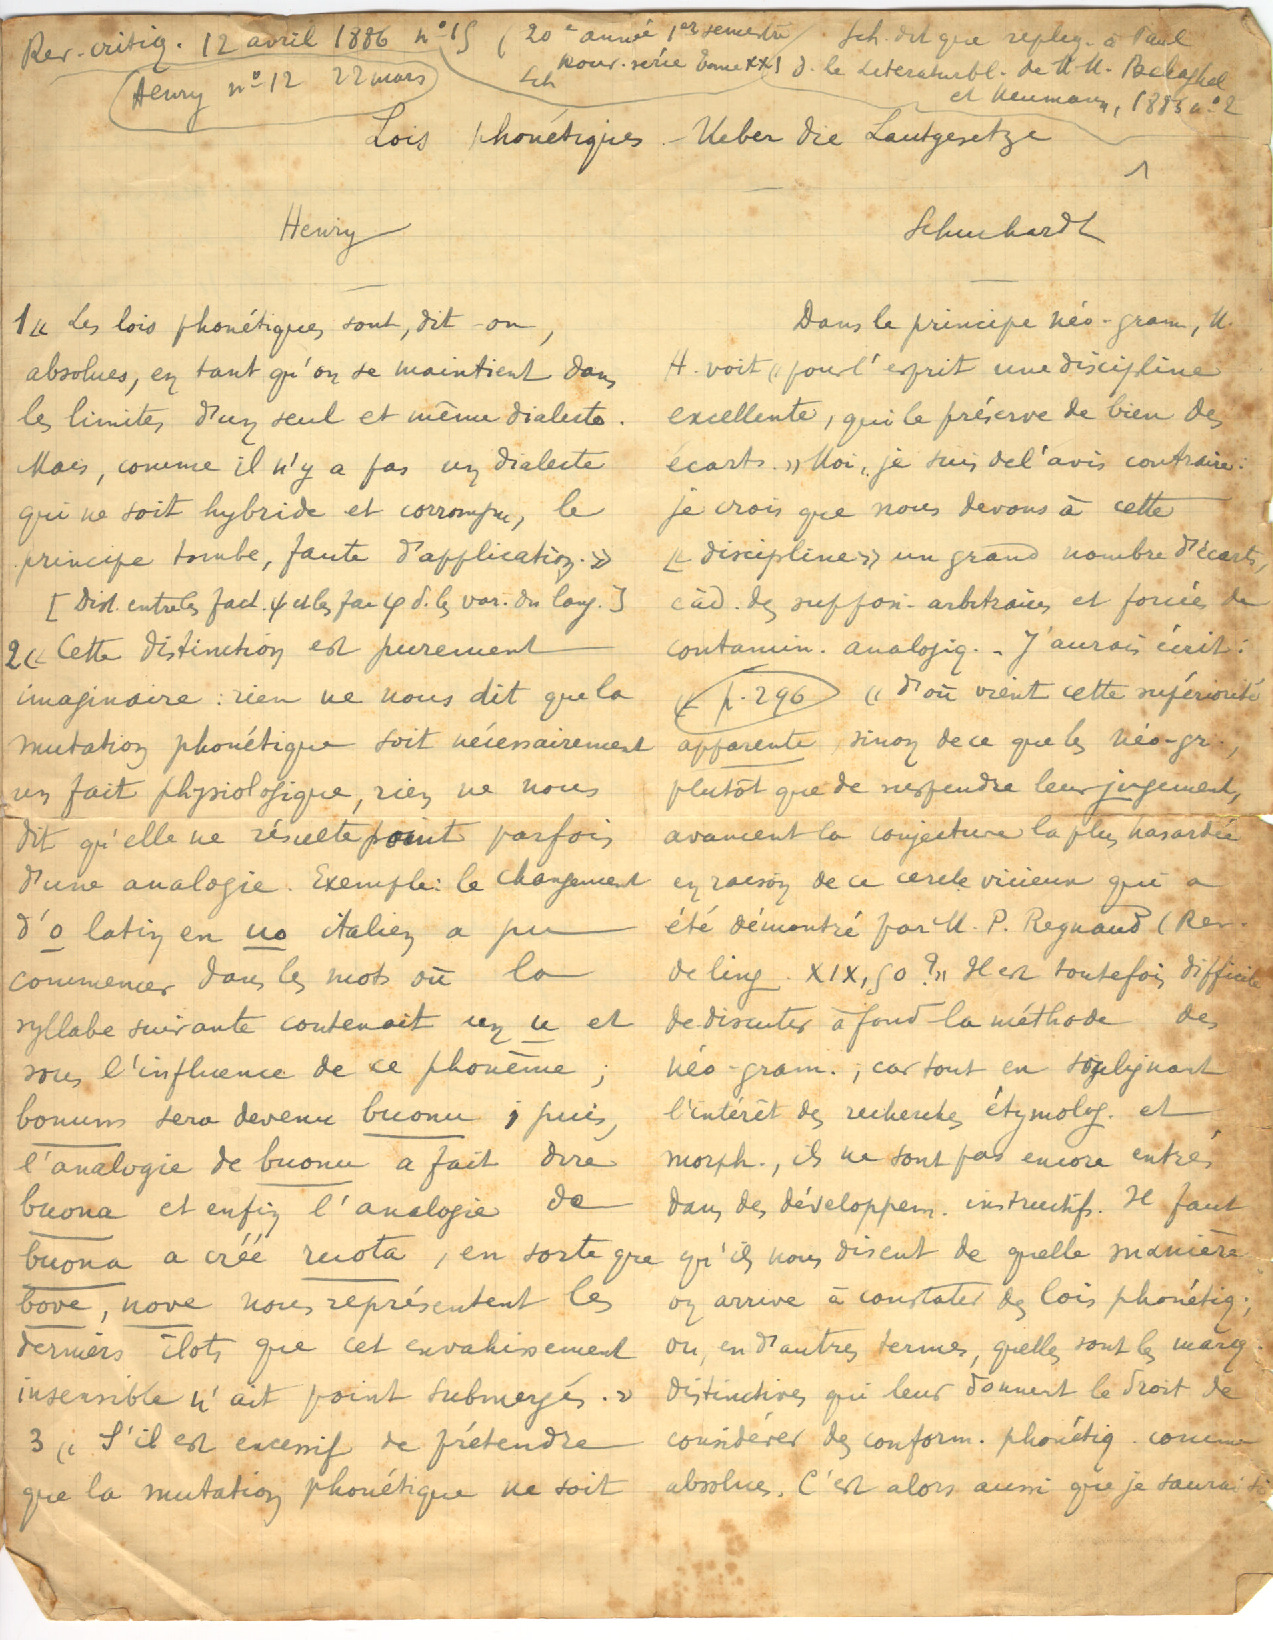 Rev. critiq. 12 avril 1886 n° 15 ( 20e année 1er semestre
nouv. série Tome XXI
Henry n° 12 22 mars
Sch. dit que repliq. à Paul
Sch d. le Literaturbl. de M. M. Behaghel
et Neumann, 1886 n° 2
Lois phonétiques - Ueber die Lautgesetze
Henry
1 « Les lois phonétiques sont, dit-on,
absolues, en tant qu'on se maintient dans
les limites d'un seul et même dialecte.
Mais, comme il n'y a pas un dialecte
qui ne soit hybride et corrompu, le
principe tombe, faute d'application. »
[ Dist. entre les fact. ψ et les fac φ d. les var. du lang. ]
2 « Cette distinction est purement
imaginaire : rien ne nous dit que la
mutation phonétique soit nécessairement
un fait physiologique, rien ne nous
dit qu'elle ne résulte point parfois
d'une analogie. Exemple : le changement
d'o latin en uo italien a pu
commencer dans les mots où la
syllabe suivante contenait un u et
sous l'influence de ce phonème ;
bonum sera devenu buonu ; puis,
l'analogie de buonu a fait dire
buona et enfin l'analogie de
buona a créé ruota, en sorte que
bove, nove nous représentent les
derniers îlots que cet envahissement
insensible n'ait point submergés. »
3 « S'il est excessif de prétendre
que la mutation phonétique ne soit
Schuchardt
Dans le principe néo-gram, M.
H. voit « pour l'esprit une discipline
excellente, qui le préserve de bien des
écarts. » Moi, je suis de l'avis contraire :
je crois que nous devons à cette
« discipline » un grand nombre d'écarts,
càd. des suppos. arbitraires et forcées de
contamin. analogiq. - J'aurais écrit :
« p. 296 « d'où vient cette supériorité
apparente, sinon de ce que les néo-gr.,
plutôt que de suspendre leur jugement,
avancent la conjecture la plus hasardée
en raison de ce cercle vicieux qui a
été démontré par M. P. Regnaud (Rev.
de ling. XIX, 50 ? » Il est toutefois difficile
de discuter à fond la méthode des
néo-gram. ; car tout en soulignant
l'intérêt des recherches étymolog. et
morph., ils ne sont pas encore entrés
dans des développem. instructifs. Il faut
qu'ils nous disent de quelle manière
on arrive à constater des lois phonétiq.,
ou, en d'autres termes, quelles sont les marq.
distinctives qui leur donnent le droit de
considérer des conform. phonétiq. comme
absolues. C'est alors aussi que je saurai si